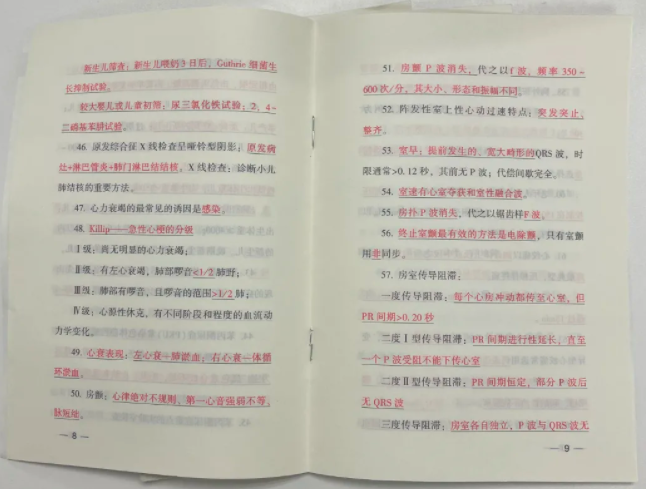 新生儿筛查：新生儿喂奶3日后，Guthrie 细菌生
长抑制试验。
较大婴儿或儿童初筛：尿三氯化铁试验；2，4-
二硝基苯肼试验。
46. 原发综合征X线检查呈哑铃型阴影：原发病
灶+淋巴管炎+肺门淋巴结结核，X线检查：诊断小儿
肺结核的重要方法。
47. 心力衰竭的最常见的诱因是感染。
48. Killip——急性心梗的分级
Ⅰ级：尚无明显的心力衰竭；
Ⅱ级：有左心衰竭，肺部啰音<1/2肺野；
Ⅲ级：肺部有啰音，且啰音的范围>1/2肺；
Ⅳ级：心源性休克，有不同阶段和程度的血流动
力学变化。
49. 心衰表现：左心衰—肺淤血；右心衰—体循
环淤血。
50. 房颤：心律绝对不规则、第一心音强弱不等、
脉短绌。
— 8 —
51. 房颤P波消失，代之以f波，频率350~
600次/分，其大小、形态和振幅不同。
52. 阵发性室上性心动过速特点：突发突止，
整齐。
53. 室早：提前发生的、宽大畸形的QRS波，时
限通常>0.12秒，其前无P波；代偿间歇完全。
54. 室速有心室夺获和室性融合波。
55. 房扑P波消失，代之以锯齿样F波。
56. 终止室颤最有效的方法是电除颤，只有室颤
用非同步。
57. 房室传导阻滞：
一度传导阻滞：每个心房冲动都传至心室，但
PR间期>0.20秒
二度Ⅰ型传导阻滞：PR间期进行性延长，直至
一个P波受阻不能下传心室
二度Ⅱ型传导阻滞：PR间期恒定，部分P波后
无QRS波
三度传导阻滞：房室各自独立，P波与QRS波无
— 9 —